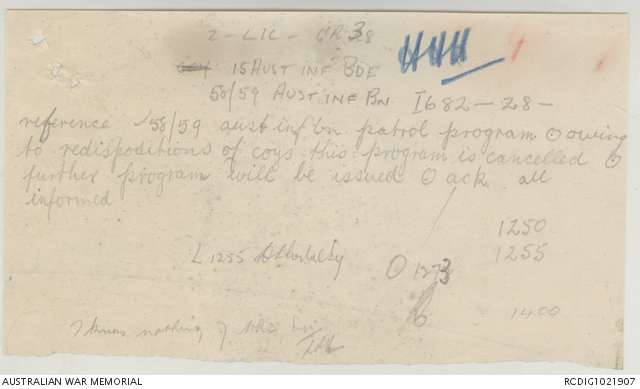 2 - LIC - GR 38
15 AUST INF BDE
58/59 AUST INF BN I682 - 28 -
reference 58/59 aust inf bn patrol program ⊙ owing
to redispositions of coys this program is cancelled ⊙
further program will be issued ⊙ ack all
informed
1250
L 1255 1255
O 1273
1400
I know nothing of
AUSTRALIAN WAR MEMORIAL RCDIG1021907